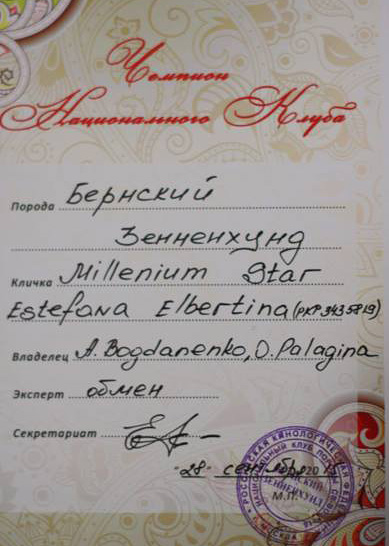 Чемпион
Национального Клуба
Порода Бернский
Зенненхунд
Кличка Millenium Star
Estefana Elbertina (РКР 3435819)
Владелец A. Bogdanenko, O. Palagina
Эксперт обмен
Секретариат
"28" сентября 2015
РОССИЙСКАЯ КИНОЛОГИЧЕСКАЯ ФЕДЕ
НАЦИОНАЛЬНЫЙ КЛУБ ПОРОДЫ
ЗЕННЕНХУНД
М.П.